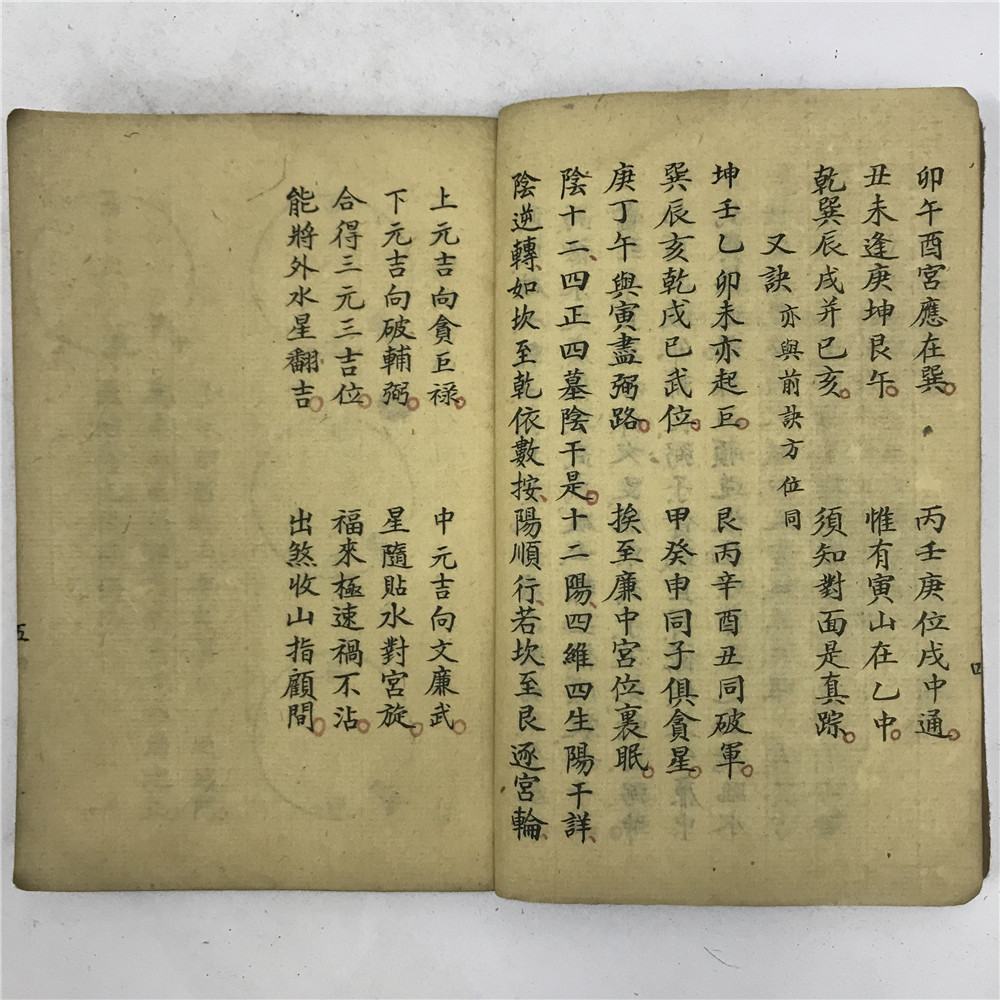 卯午酉宮應在巽。丙壬庚位戌中通。
丑未逢庚坤艮午。惟有寅山在乙中。
乾巽辰戌并巳亥。須知對面是真踪。
又訣 亦與前訣方位同
坤壬乙卯未亦起巨。艮丙辛酉丑同破軍。
巽辰亥乾戌巳武位。甲癸申同子俱貪星。
庚丁午與寅盡弼路。挨至廉中宮位裏眠。
陰十二、四正四墓陰干是。十二陽、四維四生陽干詳、
陰逆轉、如坎至乾依數按、陽順行、若坎至艮逐宮輪、
四
上元吉向貪巨祿。中元吉向文廉武。
下元吉向破輔弼。星隨貼水對宮旋。
合得三元三吉位。福來極速禍不沾。
能將外水星翻吉。出煞收山指顧間。
五